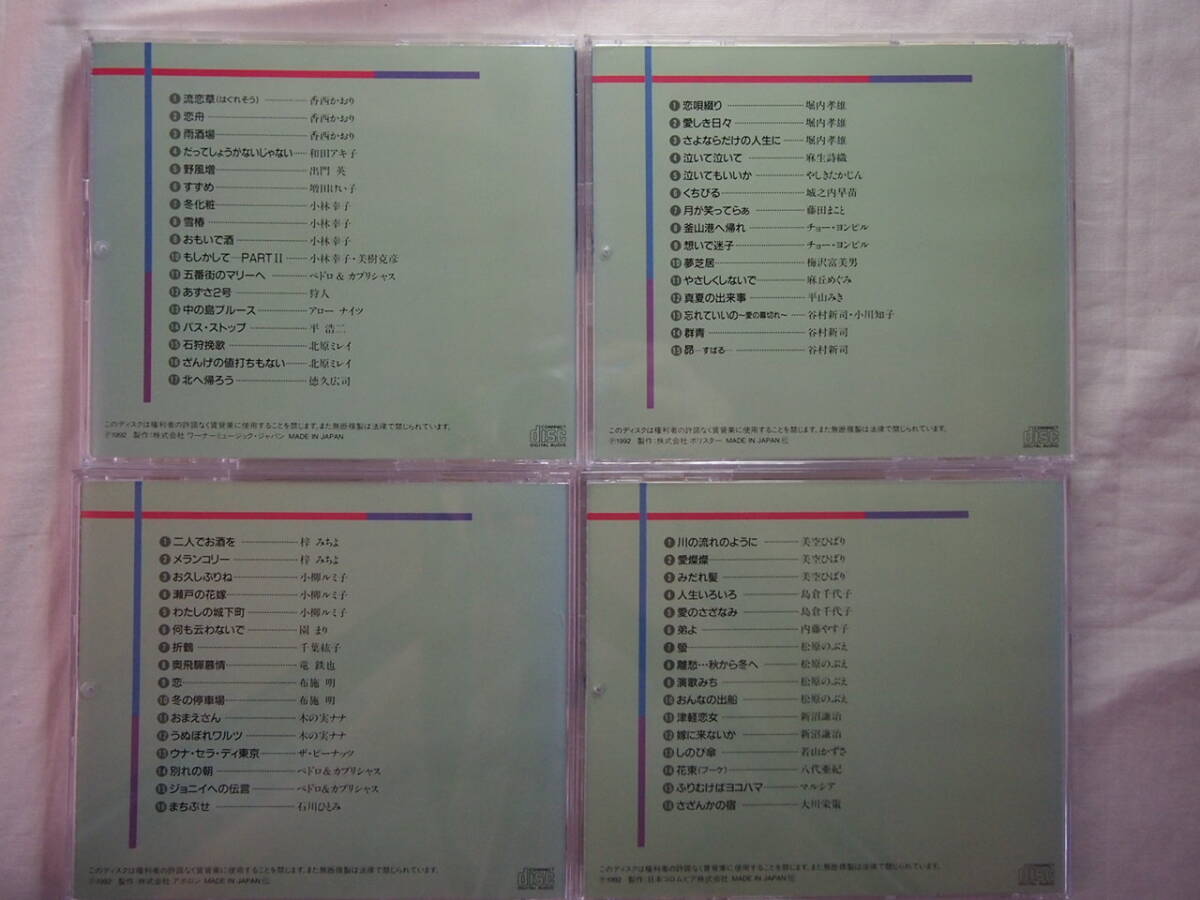 1 流恋草(はぐれそう) 香西かおり
2 恋舟 香西かおり
3 雨酒場 香西かおり
4 だってしょうがないじゃない 和田アキ子
5 野風増 出門 英
6 すずめ 増田けい子
7 冬化粧 小林幸子
8 雪椿 小林幸子
9 おもいで酒 小林幸子
10 もしかして—PARTⅡ 小林幸子・美樹克彦
11 五番街のマリーへ ペドロ&カプリシャス
12 あずさ2号 狩人
13 中の島ブルース アロー ナイツ
14 バス・ストップ 平 浩二
15 石狩挽歌 北原ミレイ
16 ざんげの値打ちもない 北原ミレイ
17 北へ帰ろう 徳久広司
このディスクは権利者の許諾なく賃貸業に使用することを禁じます。また無断複製は法律で禁じられています。
Ⓟ1992 製作:株式会社 ワーナーミュージック・ジャパン MADE IN JAPAN
COMPACT disc DIGITAL AUDIO
1 恋唄綴り 堀内孝雄
2 愛しき日々 堀内孝雄
3 さよならだけの人生に 堀内孝雄
4 泣いて泣いて 麻生詩織
5 泣いてもいいか やしきたかじん
6 くちびる 城之内早苗
7 月が笑ってらぁ 藤田まこと
8 釜山港へ帰れ チョー・ヨンピル
9 想いで迷子 チョー・ヨンピル
10 夢芝居 梅沢富美男
11 やさしくしないで 麻丘めぐみ
12 真夏の出来事 平山みき
13 忘れていいの〜愛の幕切れ〜 谷村新司・小川知子
14 群青 谷村新司
15 昴—すばる— 谷村新司
このディスクは権利者の許諾なく賃貸業に使用することを禁じます。また無断複製は法律で禁じられています。
Ⓟ1992 製作:株式会社 ポリスター MADE IN JAPAN
COMPACT disc DIGITAL AUDIO
1 二人でお酒を 梓 みちよ
2 メランコリー 梓 みちよ
3 お久しぶりね 小柳ルミ子
4 瀬戸の花嫁 小柳ルミ子
5 わたしの城下町 小柳ルミ子
6 何も云わないで 園 まり
7 折鶴 千葉紘子
8 奥飛騨慕情 竜 鉄也
9 恋 布施 明
10 冬の停車場 布施 明
11 おまえさん 木の実ナナ
12 うぬぼれワルツ 木の実ナナ
13 ウナ・セラ・ディ東京 ザ・ピーナッツ
14 別れの朝 ペドロ&カプリシャス
15 ジョニイへの伝言 ペドロ&カプリシャス
16 まちぶせ 石川ひとみ
このディスクは権利者の許諾なく賃貸業に使用することを禁じます。また無断複製は法律で禁じられています。
Ⓟ1992 製作:株式会社 アポロン MADE IN JAPAN
COMPACT disc DIGITAL AUDIO
1 川の流れのように 美空ひばり
2 愛燦燦 美空ひばり
3 みだれ髪 美空ひばり
4 人生いろいろ 島倉千代子
5 愛のさざなみ 島倉千代子
6 弟よ 内藤やす子
7 螢 松原のぶえ
8 離愁…秋から冬へ 松原のぶえ
9 演歌みち 松原のぶえ
10 おんなの出船 松原のぶえ
11 津軽恋女 新沼謙治
12 嫁に来ないか 新沼謙治
13 しのび傘 若山かずさ
14 花束(ブーケ) 八代亜紀
15 ふりむけばヨコハマ マルシア
16 さざんかの宿 大川栄策
このディスクは権利者の許諾なく賃貸業に使用することを禁じます。また無断複製は法律で禁じられています。
Ⓟ1992 製作:日本コロムビア株式会社 MADE IN JAPAN
COMPACT disc DIGITAL AUDIO